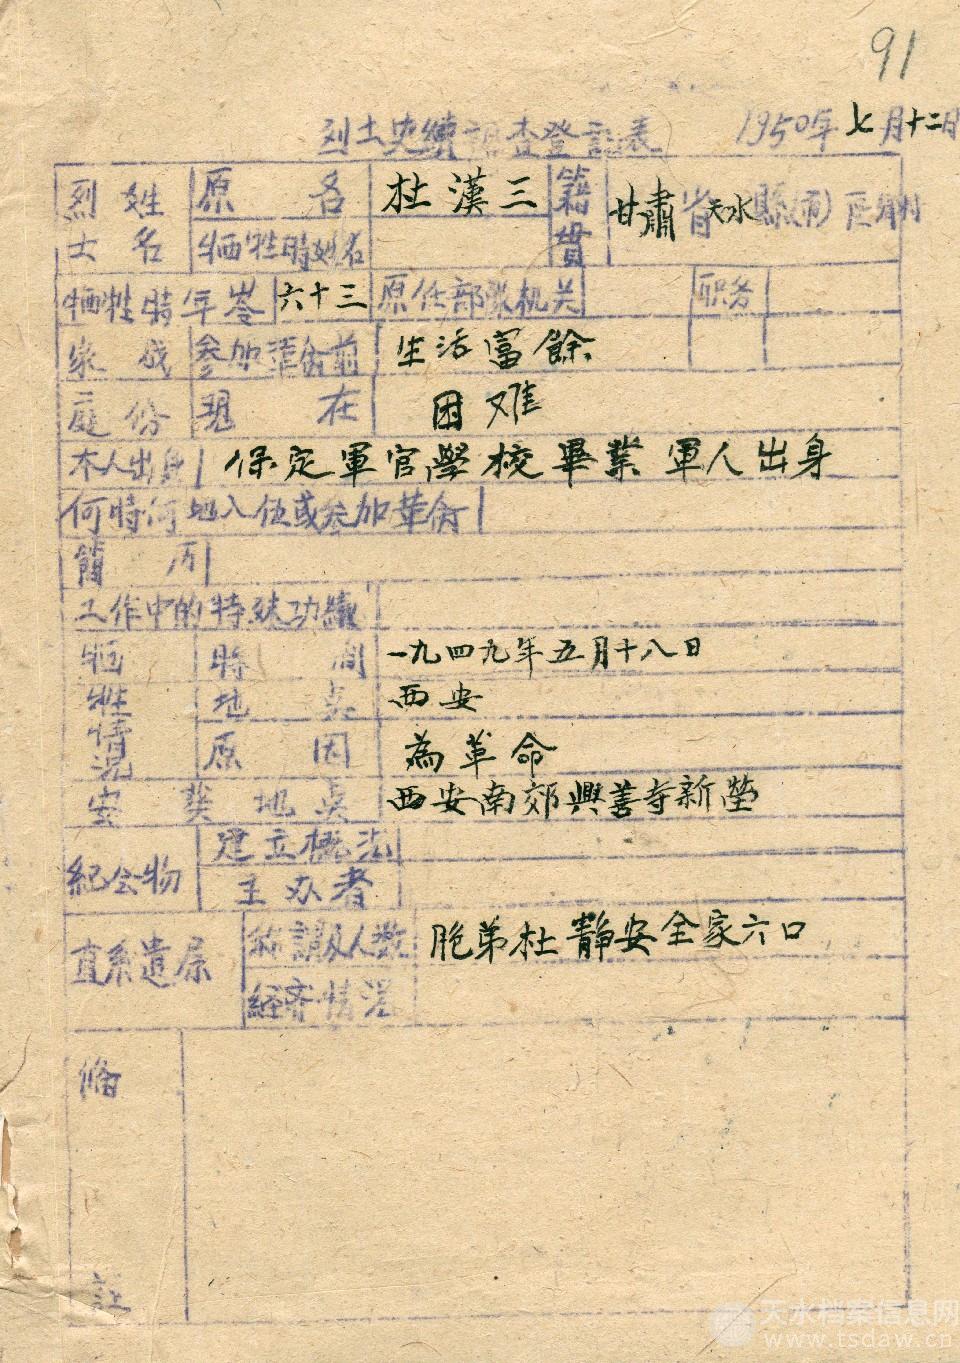 91
烈士史績調查登記表 1950年七月十二日
烈士姓名 原名 杜漢三 籍貫 甘肅省天水縣(市)區鄉村
牺牲時姓名
牺牲時年岺 六十三 原任部隊机关 职务
家庭成份 参加革命前 生活富餘
現在 困难
本人出身 保定軍官學校畢業 軍人出身
何時何地入伍或参加革命
簡历
工作中的特殊功績
牺牲情况 時間 一九四九年五月十八日
地点 西安
原因 為革命
安葬地点 西安南郊興善寺新塋
紀念物 建立概况
主办者
直系遺属 称謂及人数 胞弟杜靜安全家六口
經济情况
俻註
天水档案信息网
www.tsdaw.cn